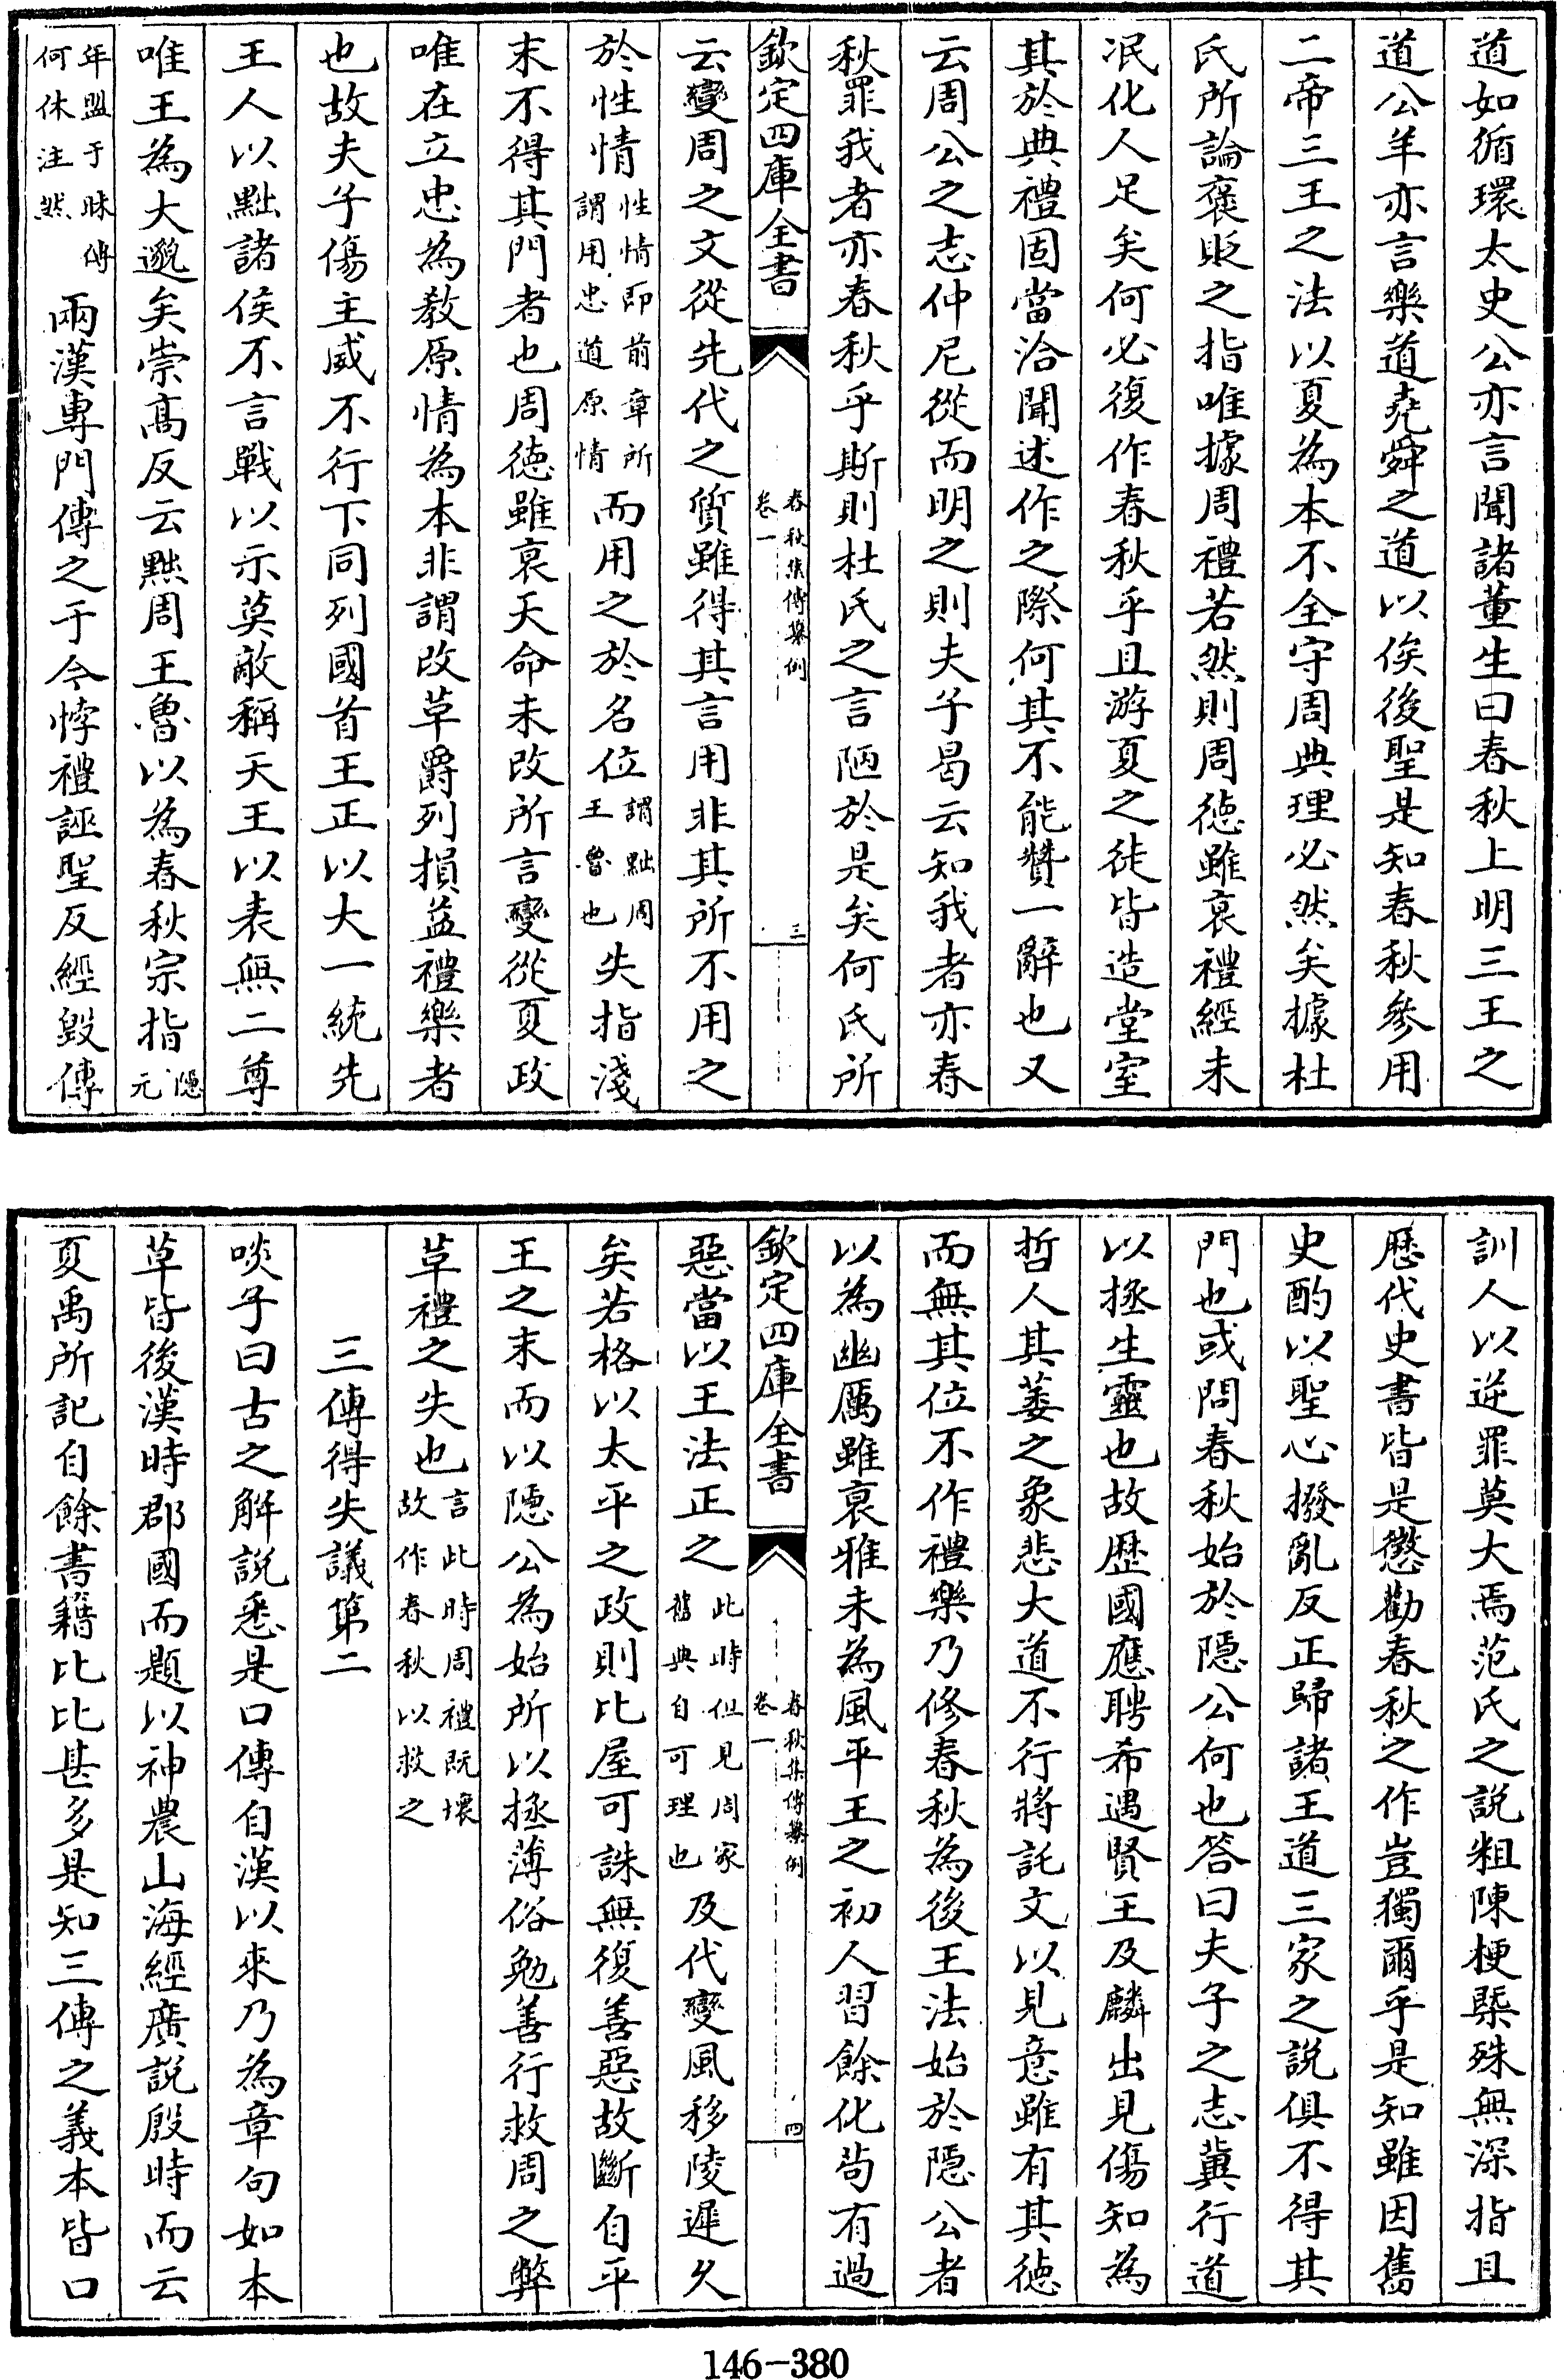 道如循環太史公亦言聞諸董生曰春秋上明三王之
道公羊亦言樂道堯舜之道以俟後聖是知春秋參用
二帝三王之法以夏為本不全守周典理必然矣據杜
氏所論襃貶之指唯據周禮若然則周徳雖衰禮經未
泯化人足矣何必復作春秋乎且游夏之徒皆造堂室
其於典禮固當洽聞述作之際何其不能贊一辭也又
云周公之志仲尼從而明之則夫子曷云知我者亦春
秋罪我者亦春秋乎斯則杜氏之言陋於是矣何氏所
欽定四庫全書
春秋集傳纂例
卷一
三
云變周之文從先代之質雖得其言用非其所不用之
於性情性情即前章所謂用忠道原情而用之於名位謂黜周王魯也失指淺
末不得其門者也周徳雖衰天命未改所言變從夏政
唯在立忠為教原情為本非謂改革爵列損益禮樂者
也故夫子傷主威不行下同列國首王正以大一統先
王人以黜諸侯不言戰以示莫敵稱天王以表無二尊
唯王為大邈矣崇髙反云黜周王魯以為春秋宗指隱元
年盟于眜傳何休注然兩漢專門傳之于今悖禮誣聖反經毀傳
訓人以逆罪莫大焉范氏之說粗陳梗槩殊無深指且
歴代史書皆是懲勸春秋之作豈獨爾乎是知雖因舊
史酌以聖心撥亂反正歸諸王道三家之說俱不得其
門也或問春秋始於隱公何也答曰夫子之志冀行道
以拯生靈也故歴國應聘希遇賢王及麟出見傷知為
哲人其萎之象悲大道不行將託文以見意雖有其徳
而無其位不作禮樂乃修春秋為後王法始於隱公者
以為幽厲雖衰雅未為風平王之初人習餘化茍有過
欽定四庫全書
春秋集傳纂例
卷一
四
惡當以王法正之此時但見周家舊典自可理也及代變風移陵遲久
矣若格以太平之政則比屋可誅無復善惡故斷自平
王之末而以隱公為始所以拯薄俗勉善行救周之弊
革禮之失也言此時周禮既壞故作春秋以救之
三傳得失議第二
啖子曰古之解說悉是口傳自漢以來乃為章句如本
草皆後漢時郡國而題以神農山海經廣說殷時而云
夏禹所記自餘書籍比比甚多是知三傳之義本皆口
146-380